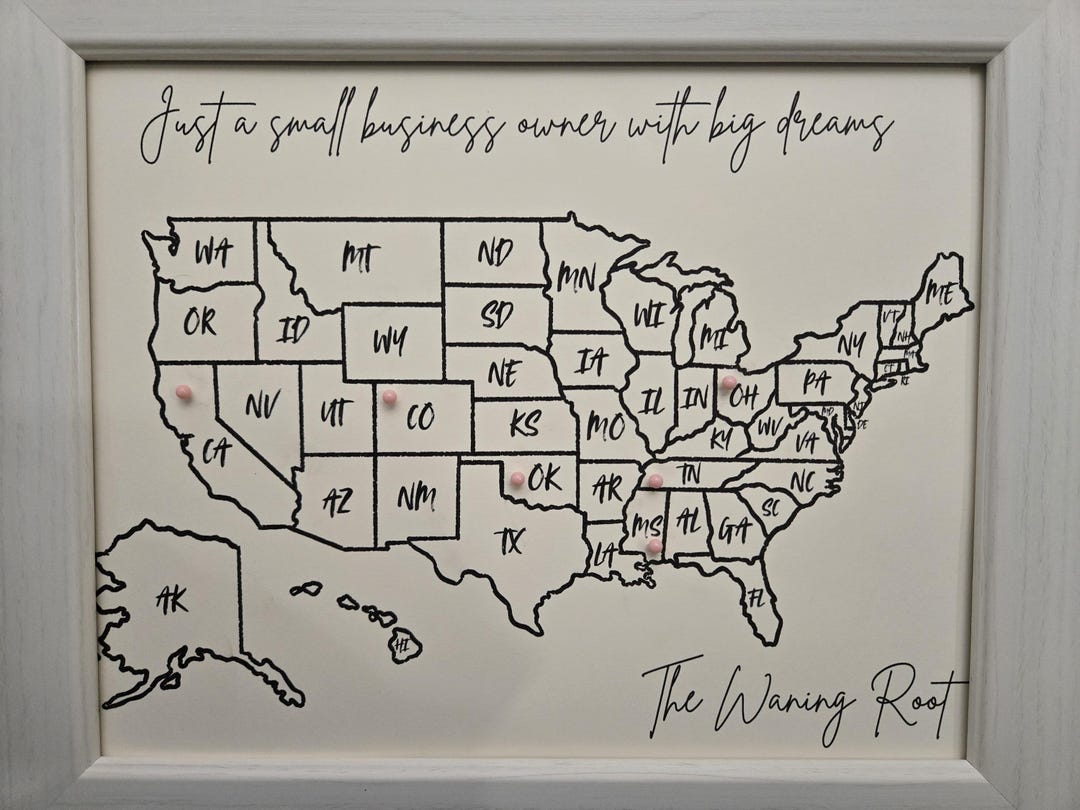 Just a small business owner with big dreams
WA
MT
ND
MN
ME
OR
ID
SD
WI
MI
VT
NH
NY
WY
IA
MA
CT
RI
NE
PA
NV
UT
CO
IL
IN
OH
NJ
MD
DE
CA
KS
MO
KY
WV
VA
AZ
NM
OK
AR
TN
NC
TX
LA
MS
AL
GA
SC
FL
AK
HI
The Waning Root